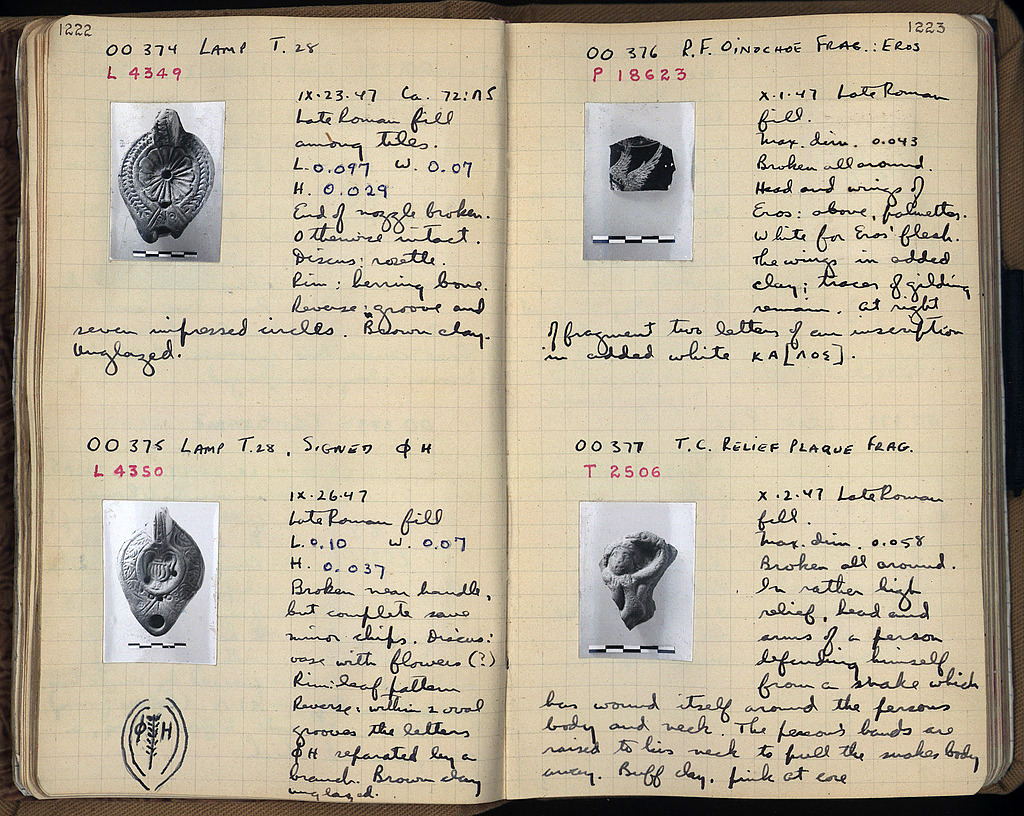 1222
OO 374 LAMP T. 28
L 4349
IX.23.47 Ca. 72:ΛS
Late Roman fill
among tiles.
L. 0.097 W. 0.07
H. 0.029
End of nozzle broken.
Otherwise intact.
Discus: rosette.
Rim: herring bone.
Reverse: groove and
seven impressed circles. Brown clay.
Unglazed.
OO 375 LAMP T.28, SIGNED ΦH
L 4350
IX.26.47
Late Roman fill
L. 0.10 W. 0.07
H. 0.037
Broken near handle,
but complete save
minor chips. Discus:
vase with flowers (?)
Rim: leaf pattern
Reverse: within 2 oval
grooves the letters
ΦH separated by a
branch. Brown clay
unglazed.
Φ H
1223
OO 376 R.F. OINOCHOE FRAG.: EROS
P 18623
X.1.47 Late Roman
fill.
Max. dim. 0.043
Broken all around.
Head and wings of
Eros: above, palmettes.
White for Eros' flesh.
The wings in added
clay; traces of gilding
remain. At right
of fragment two letters of an inscription
in added white KA[ΛΟΣ].
OO 377 T.C. RELIEF PLAQUE FRAG.
T 2506
X.2.47 Late Roman
fill.
Max. dim. 0.058
Broken all around.
In rather high
relief, head and
arms of a person
defending himself
from a snake which
has wound itself around the persons
body and neck. The person's hands are
raised to his neck to pull the snakes body
away. Buff clay, pink at core